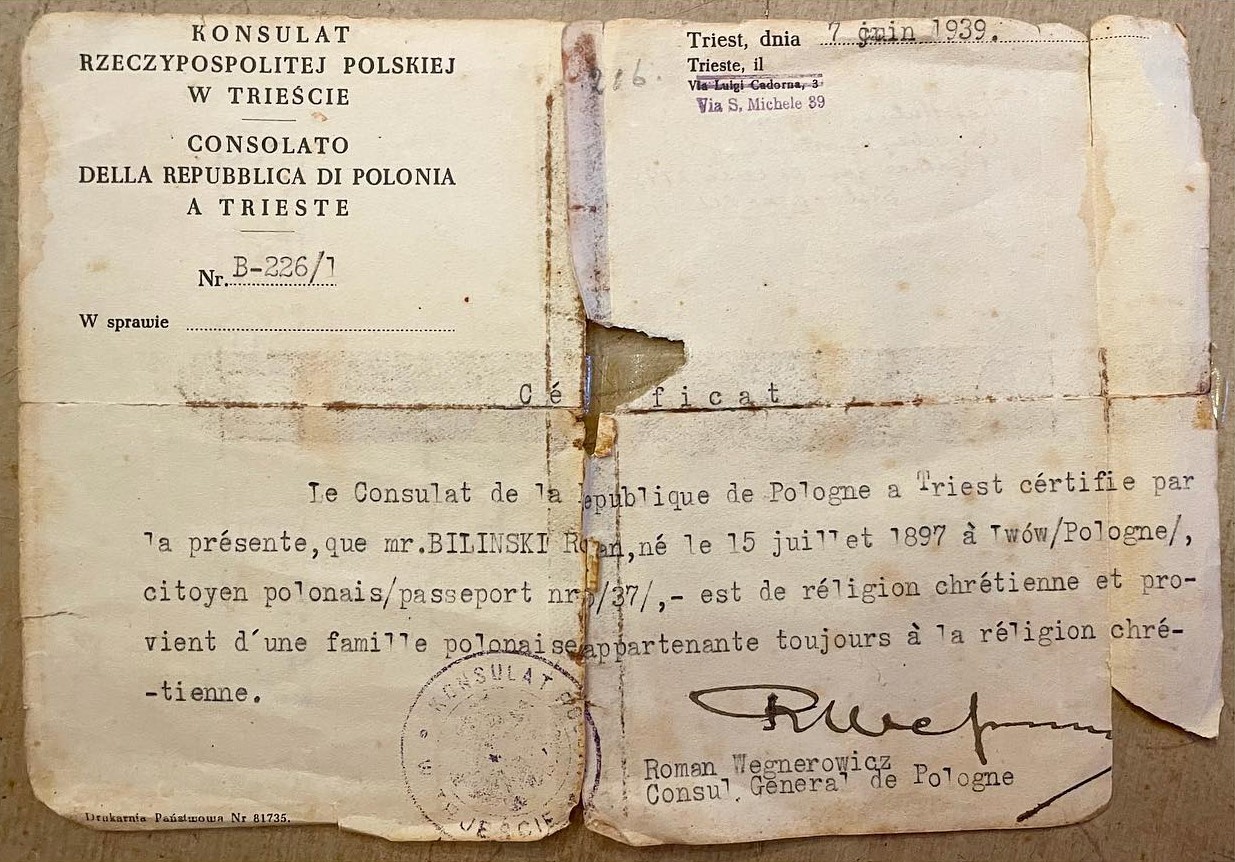 KONSULAT
RZECZYPOSPOLITEJ POLSKIEJ
W TRIEŚCIE
CONSOLATO
DELLA REPUBBLICA DI POLONIA
A TRIESTE
Nr. B-226/1
W sprawie
Triest, dnia 7 1939.
Trieste, il
Via Luigi Cadorna, 3
Via S. Michele 39
Cé ficat
Le Consulat de la epublique de Pologne a Triest cértifie par
la présente,que mr.BILINSKI R an,né le 15 juillet 1897 à Lwów/Pologne/,
citoyen polonais/passeport nr /37/,- est de réligion chrétienne et pro-
vient d´une famille polonaise appartenante toujours à la réligion chré-
-tienne.
KONSULAT
Roman Wegnerowicz
Consul General de Pologne
Drukarnia Państwowa Nr 81735.